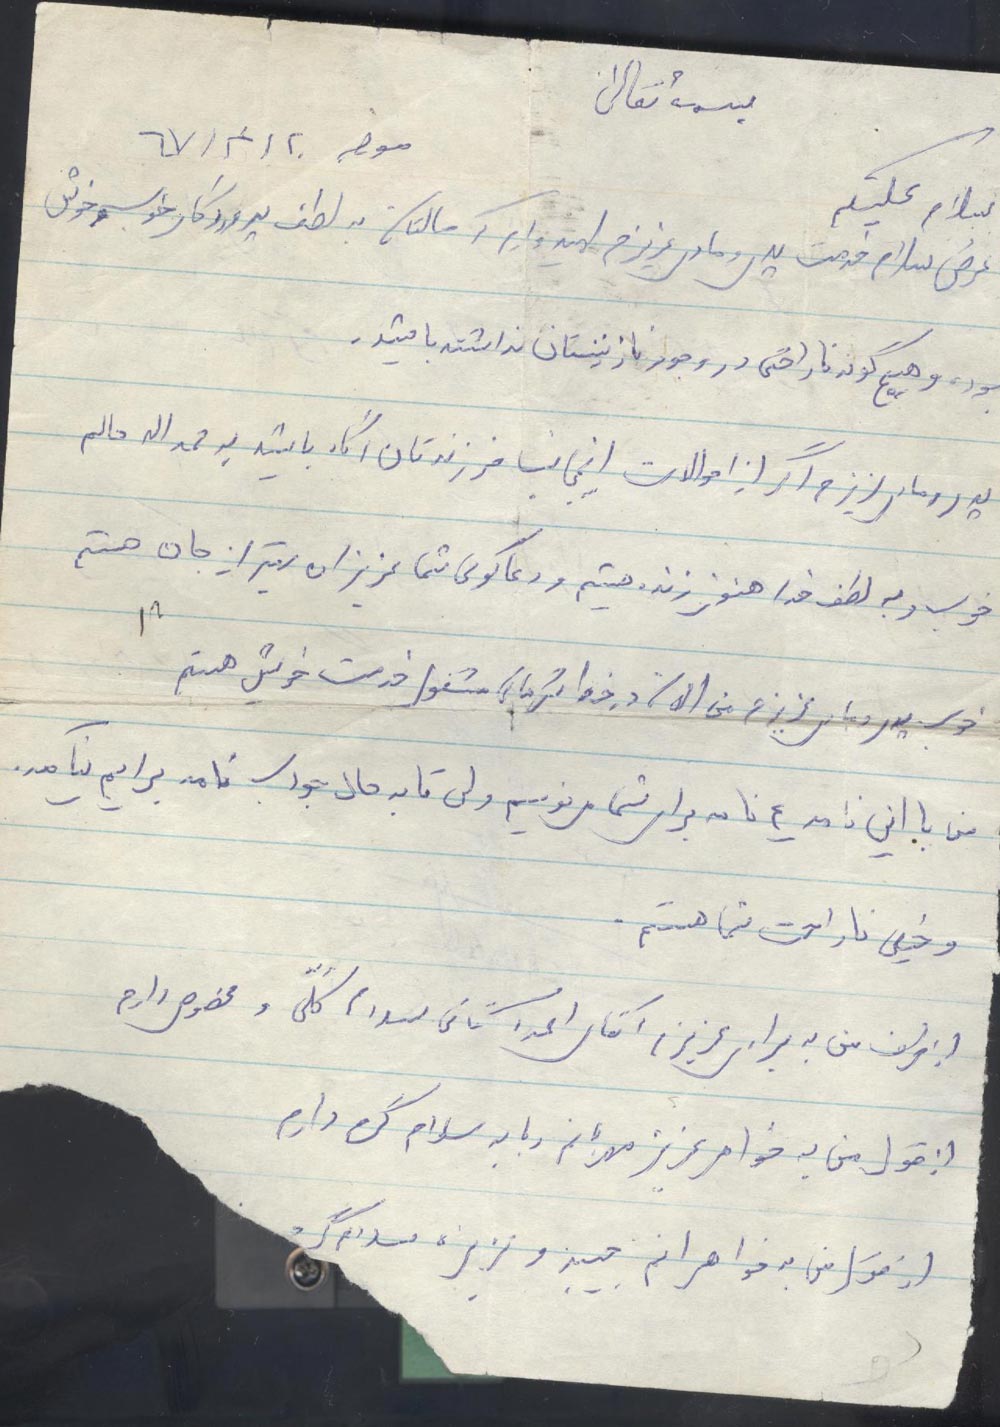 بسمه تعالی
مورخه ۶۷/۴/۲۰
سلام علیکم
عرض سلام خدمت پدر و مادر عزیزم امیدوارم که حالتان به لطف پروردگار خوب و خوش
بوده و هیچ گونه ناراحتی در وجود نازنینتان نداشته باشید.
پدر و مادر عزیزم اگر از احوالات اینجانب فرزندتان آگاه باشید به حمد اله حالم
خوب و به لطف خدا هنوز زنده هستم و دعاگوی شما عزیزان بهتر از جان هستم
خوب پدر و مادر عزیزم من الان در مشغول خدمت خویش هستم
من با این نامه ۴ نامه برای شما می‌نویسم ولی تا به حال جواب نامه برایم نیامد.
و خیلی ناراحت شما هستم.
از طرف من به برادر عزیزم آقای احمد سلام و مخصوص دارم
از قول من به خواهر عزیزم ربابه سلام گرم دارم
از قول من به خواهرانم و سلام گر